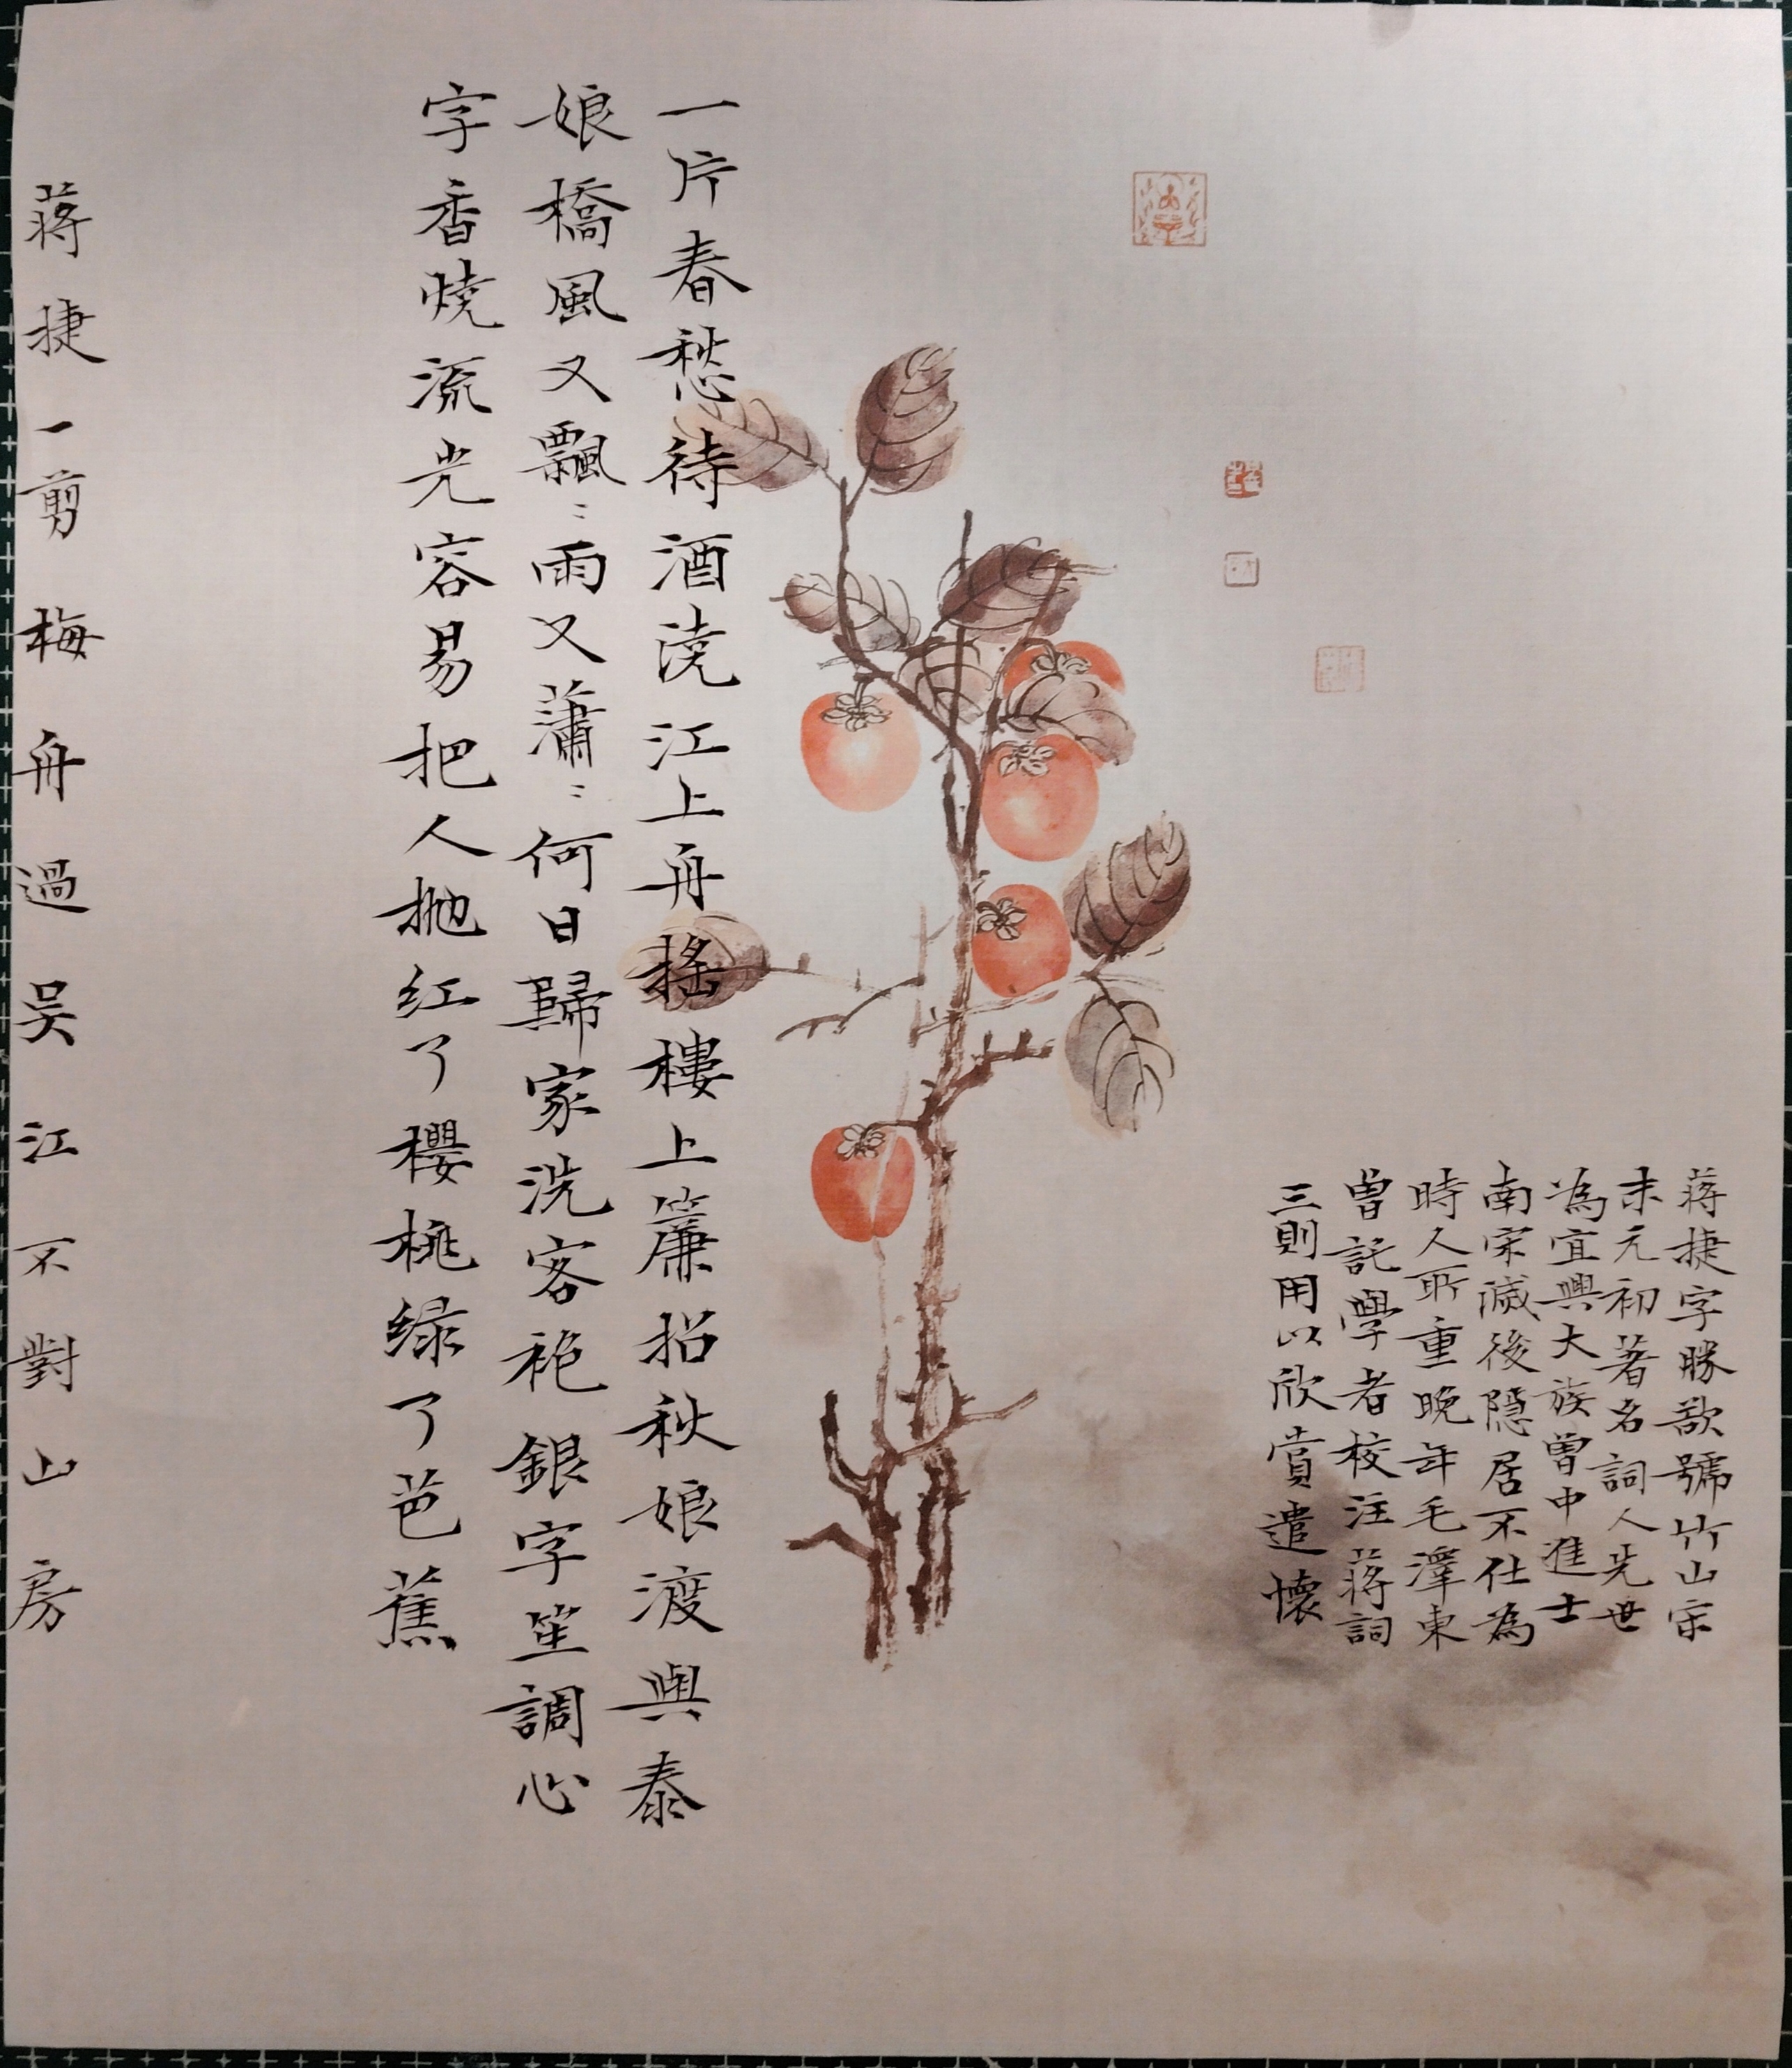 蔣捷字勝欲號竹山宋
末元初著名詞人先世
為宜興大族曾中進士
南宋滅後隱居不仕為
時人所重晚年毛澤東
曾託學者校注蔣詞
三則用以欣賞遣懷
一片春愁待酒澆江上舟搖樓上簾招秋娘渡與泰
娘橋風又飄〻雨又蕭〻何日歸家洗客袍銀字笙調心
字香燒流光容易把人拋红了櫻桃绿了芭蕉
蔣捷一剪梅舟過吴江不對山房